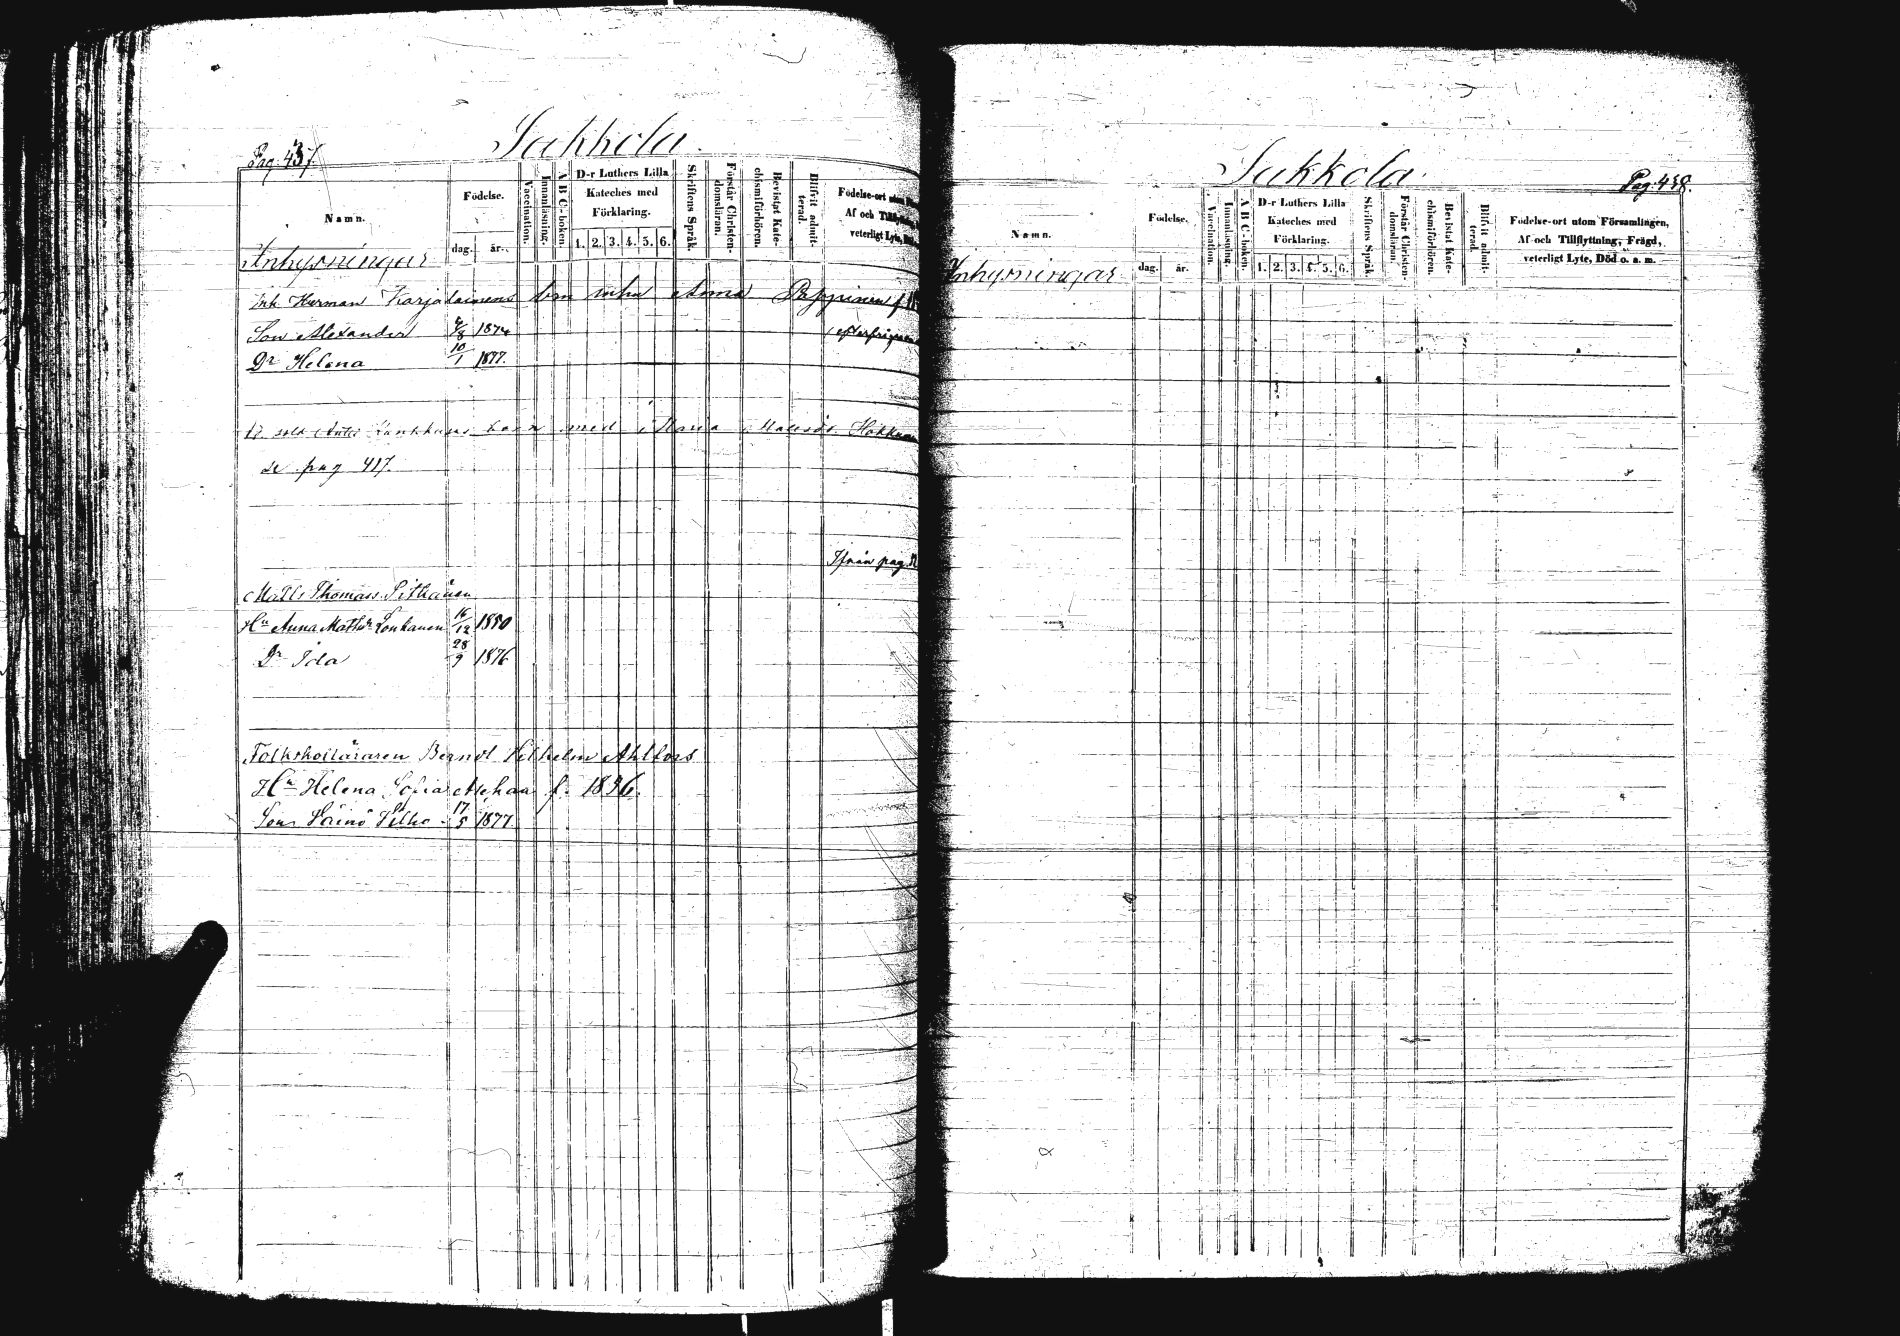 Sakkola.
Pag. 437.
Namn.
Födelse.
dag.
år.
Vaccination.
Innanläsning.
A B C-boken.
D-r Luthers Lilla
Kateches med
Förklaring.
1. 2. 3. 4. 5. 6.
Skriftens Språk.
Förstår Christen-
domsläran.
Bevistat Kate-
chismiförhören.
Blifvit admit-
terad.
Födelse-ort utom
Af och
veterligt Lyte,
Inhysningar
Inh Herman Karjalainens barn Anna Pippinen
Son Alexander 4/3 1874
Dr Helena 10/1 1877.
barn med Maria
se pag 417.
Ifrån pag.
Matts Thomass. Pitkänen
Hu Anna Mattsdr Loukanen 16/12 1850
Dr Ida 28/9 1876
Folkskolläraren Berndt Vilhelm Ahlfors
Hu Helena Sofia f. 1836.
Son Väinö Vilho 17/5 1877.
Sakkola.
Pag. 438.
Namn.
Födelse.
dag.
år.
Vaccination.
Innanläsning.
A B C-boken.
D-r Luthers Lilla
Kateches med
Förklaring.
1. 2. 3. 4. 5. 6.
Skriftens Språk.
Förstår Christen-
domsläran.
Bevistat Kate-
chismiförhören.
Blifvit admit-
terad.
Födelse-ort utom Församlingen,
Af och Tillflyttning, Frägd,
veterligt Lyte, Död o. s. m.
Inhysningar